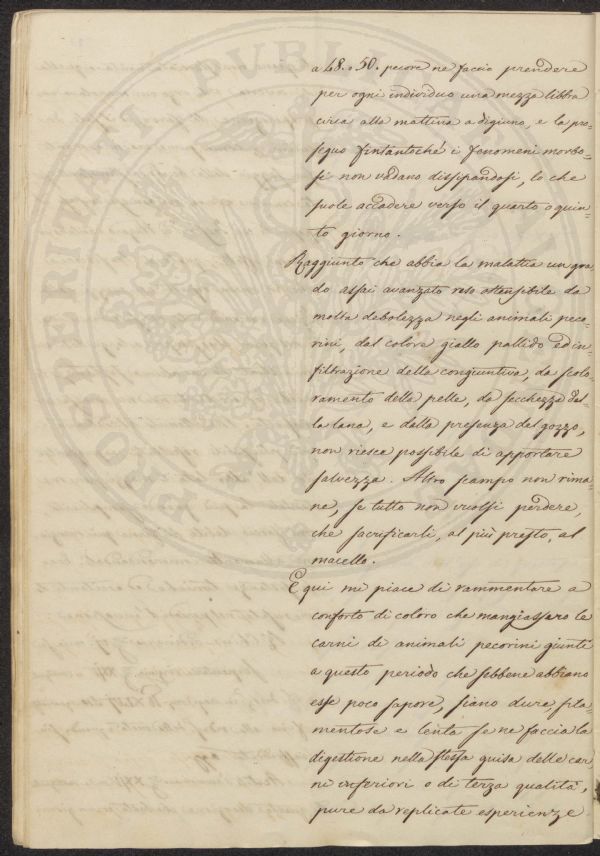 a 48. o 50. pecore ne faccio prendere
per ogni individuo una mezza libbra
circa alla mattina a digiuno, e la pro=
seguo fintantoché i fenomeni morbo=
si non vadano dissipandosi, lo che
suole accadere verso il quarto o quin=
to giorno.
Raggiunto che abbia la malattia un gra
do assai avanzato reso ostensibile da
molta debolezza negli animali peco
rini, dal colore giallo pallido ed in
filtrazione della congiuntiva, da scolo
ramento della pelle, da secchezza del
la lana, e dalla presenza del gozzo,
non riesce possibile di apportare
salvezza. Altro scampo non rima
ne, se tutto non vuolsi perdere,
che sacrificarli, al più presto, al
macello.
E qui mi piace di rammentare a
conforto di coloro che mangiassero le
carni di animali pecorini giunti
a questo periodo che sebbene abbiano
esse poco sapore, siano dure fila
mentose e lenta se ne faccia la
digestione nella stessa guisa delle car
ni inferiori o di terza qualità,
pure da replicate esperienze